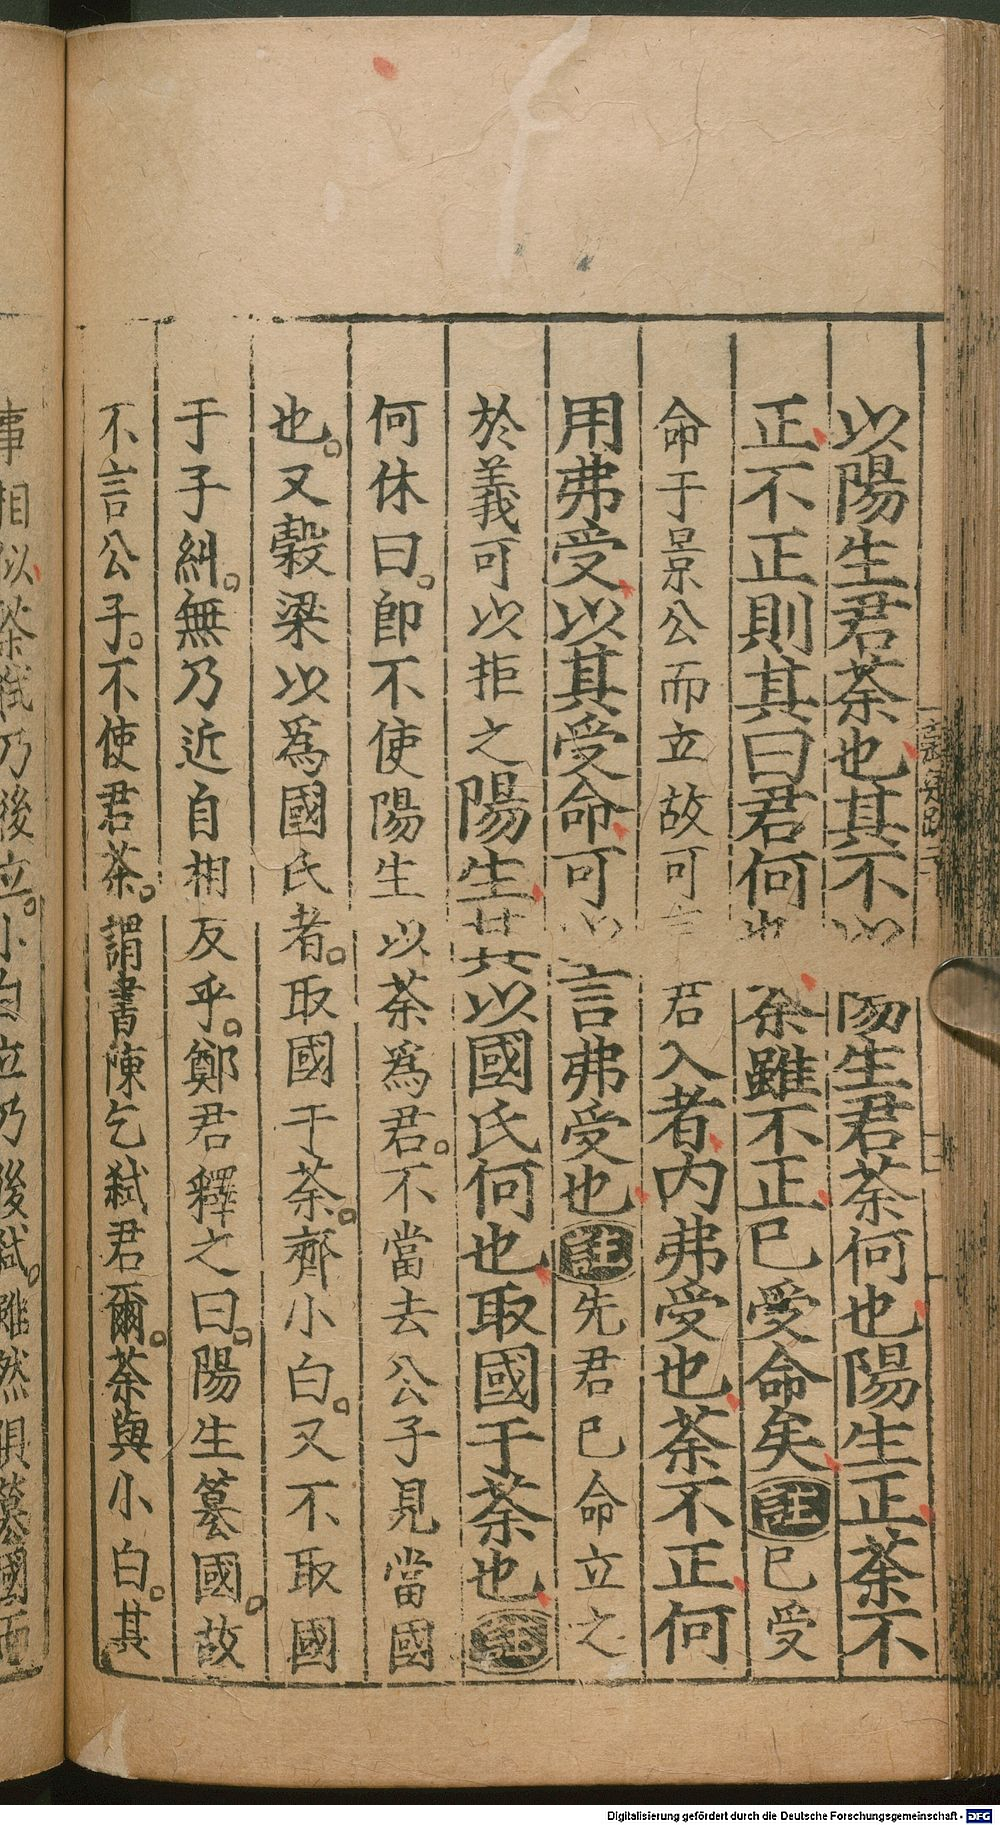 以陽生君荼也其不以陽生君荼何也陽生正荼不
正不正則其曰君何也荼雖不正已受命矣註已受
命于景公而立故可言君入者內弗受也荼不正何
用弗受以其受命可以言弗受也註先君已命立之
於義可以拒之陽生其以國氏何也取國于荼也註
何休曰即不使陽生以荼為君不當去公子見當國
也又穀梁以為國氏者取國于荼齊小白又不取國
于子糾無乃近自相反乎鄭君釋之曰陽生篡國故
不言公子不使君荼謂書陳乞弒君爾荼與小白其
事相似荼弒乃後立小白立乃後弒雖然俱篡國而
Digitalisierung gefördert durch die Deutsche Forschungsgemeinschaft - DFG